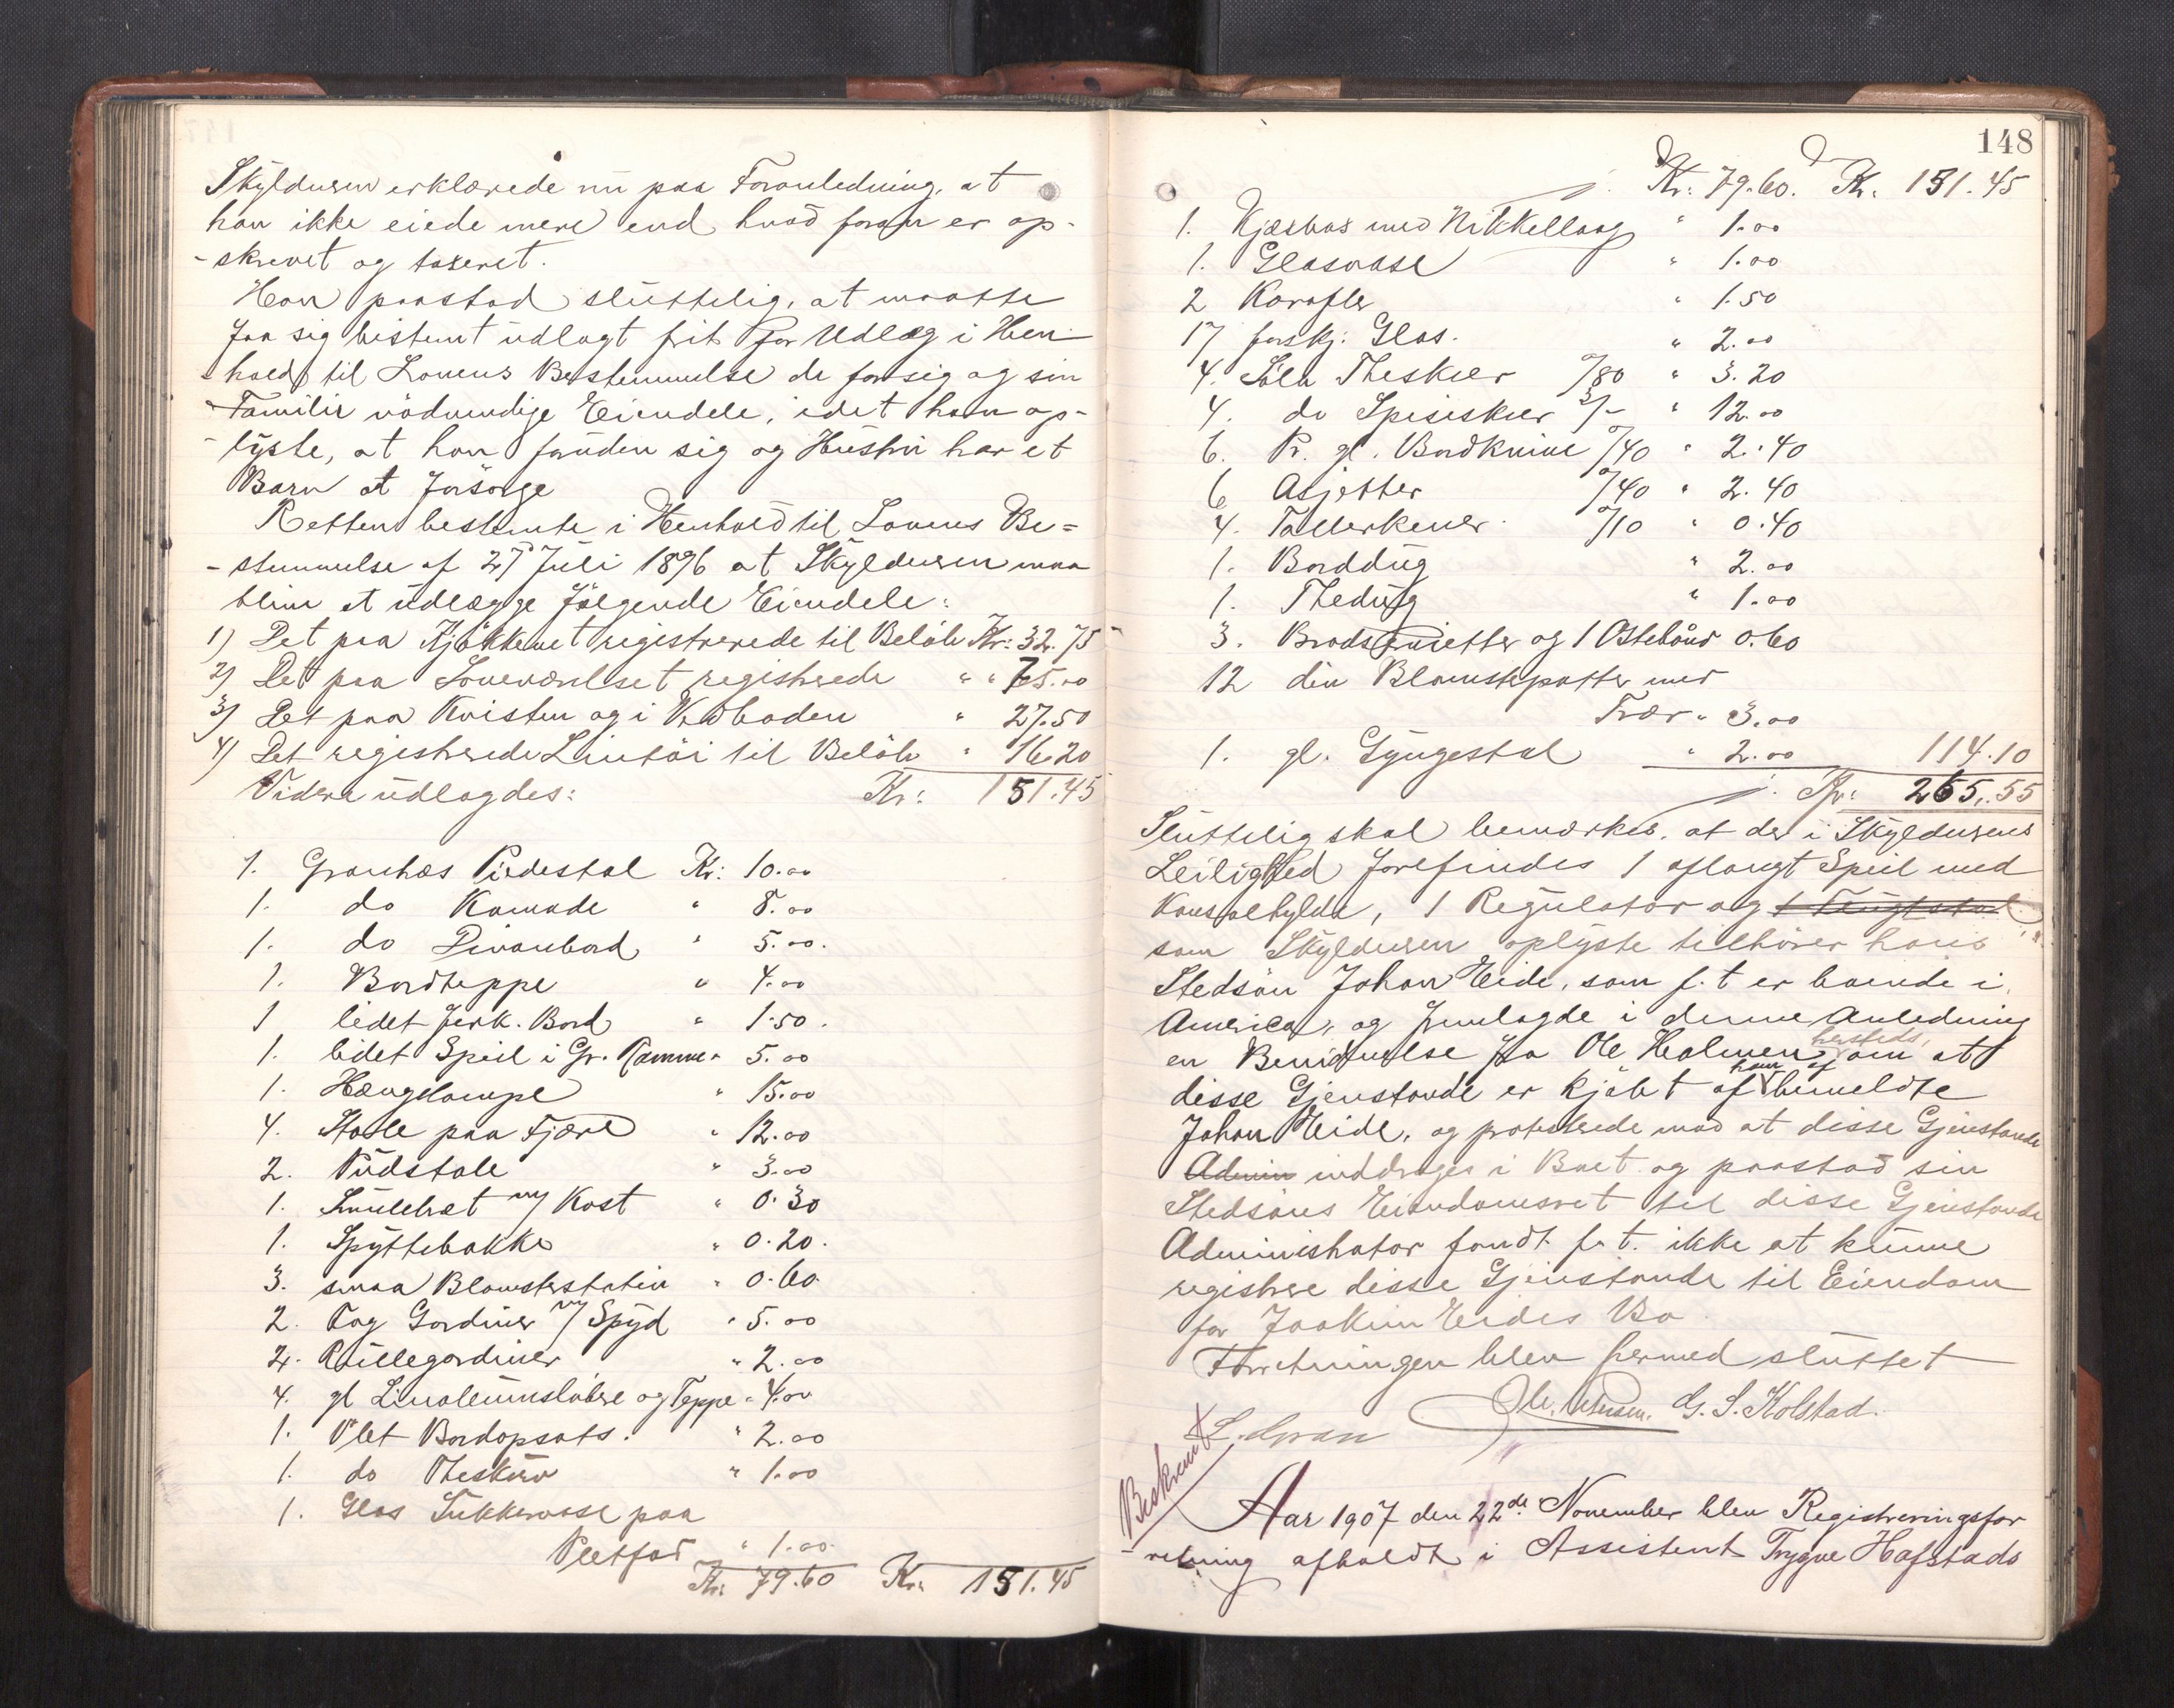 Skyldneren erklærede nu paa Foranledning, at
han ikke eiede mere end hvad foran er op-
-skrevet og taxeret.
Han paastod sluttelig, at maatte
faa sig bestemt udlagt frit for Udlæg i Hen-
-hold til Lovens Bestemmelse de for sig og sin
Familie nödvendige Eiendele, idet han op-
-lyste, at han foruden sig og Hustru har et
Barn at forsörge
Retten bestemte i Henhold til Lovens Be=
-stemmelse af 27 Juli 1896 at Skyldneren maa
blive at udlægge fölgende Eiendele:
1) Det paa Kjökkenet registrerede til Belöb Kr: 32.75
2) Det paa Soveværelset registrerede " " 75.00
3) Det paa Kvisten og i Vedboden " 27.50
4) Det registrerede Lintöi til Belöb " 16.20
Videre udlagdes: Kr: 151.45
1. Granhæs Piedestal Kr: 10.00
1. do Komode " 8.00
1. do Divanbord " 5.00.
1. Bordteppe " 4.00
1 lidet firk. Bord " 1.50.
1. lidet Speil i Gr. Ramme " 5.00
1. Hængelampe " 15.00
4. Stole paa Fjære " 12.00
2. Pudstole " 3.00
1. Smulebræt m/ Kost " 0.30
1. Spyttebakke " 0.20.
3. smaa Blomsterstativ " 0.60.
2. Fag Gardiner m/ Spyd " 5.00
2. Rullegardiner " 2.00
4. gl Linoleumslöbere og Teppe " 4.00
1. Plet Bordopsats. " 2.00
1. do Theskurv " 1.00
1. Glas Sukkervase paa
Pletfod " 1.00.
Kr: 79.60 Kr: 151.45
148
Kr: 79.60. Kr. 151.45
1. med Nikkellaag " 1.00
1. Glasvase " 1.00
2 Karafler " 1.50
17 forskj. Glas. " 2.00
4. Sölv Theskeer /80 " 3.20
4. do Spiseskeer 3/- " 12.00
6. Pr. gl. Bordknive /40 " 2.40
6 Asjetter /40 " 2.40
4. Tallerkener /10 " 0.40
1. Borddug " 2.00
1. Thedug " 1.00
3. Brodservietter og 1 0.60
12 div Blomsterpotter med
Trær " 3.00
1. gl. Gyngestol " 2.00 114.10
Kr: 265.55
Sluttelig skal bemærkes, at der i Skyldnerens
Leilighed forefindes 1 aflangt Speil med
Konsolhylde, 1 Regulator og
som Skyldneren oplyste tilhører hans
Stedsön Johan Eide, som f.t er boende i
America, og fremlagde i denne Anledning
en Bevidnelse fra Ole Holmen hersteds, om at
disse Gjenstande er kjöbt af ham af bemeldte
Johan Eide, og protesterede mod at disse Gjenstande
Admin inddrages i Boet og paastod sin
Stedsöns Eiendomsret til disse Gjenstande
Administrator fandt f.t. ikke at kunne
registrere disse Gjenstande til Eiendom
for Joakim Eides Bo.
Forretningen blev hermed sluttet
G. S. Kolstad.
L. Gran
Beskrevet
Aar 1907 den 22de November blev Registreringsfor
-retning afholdt i Assistent Trygve Hafstads